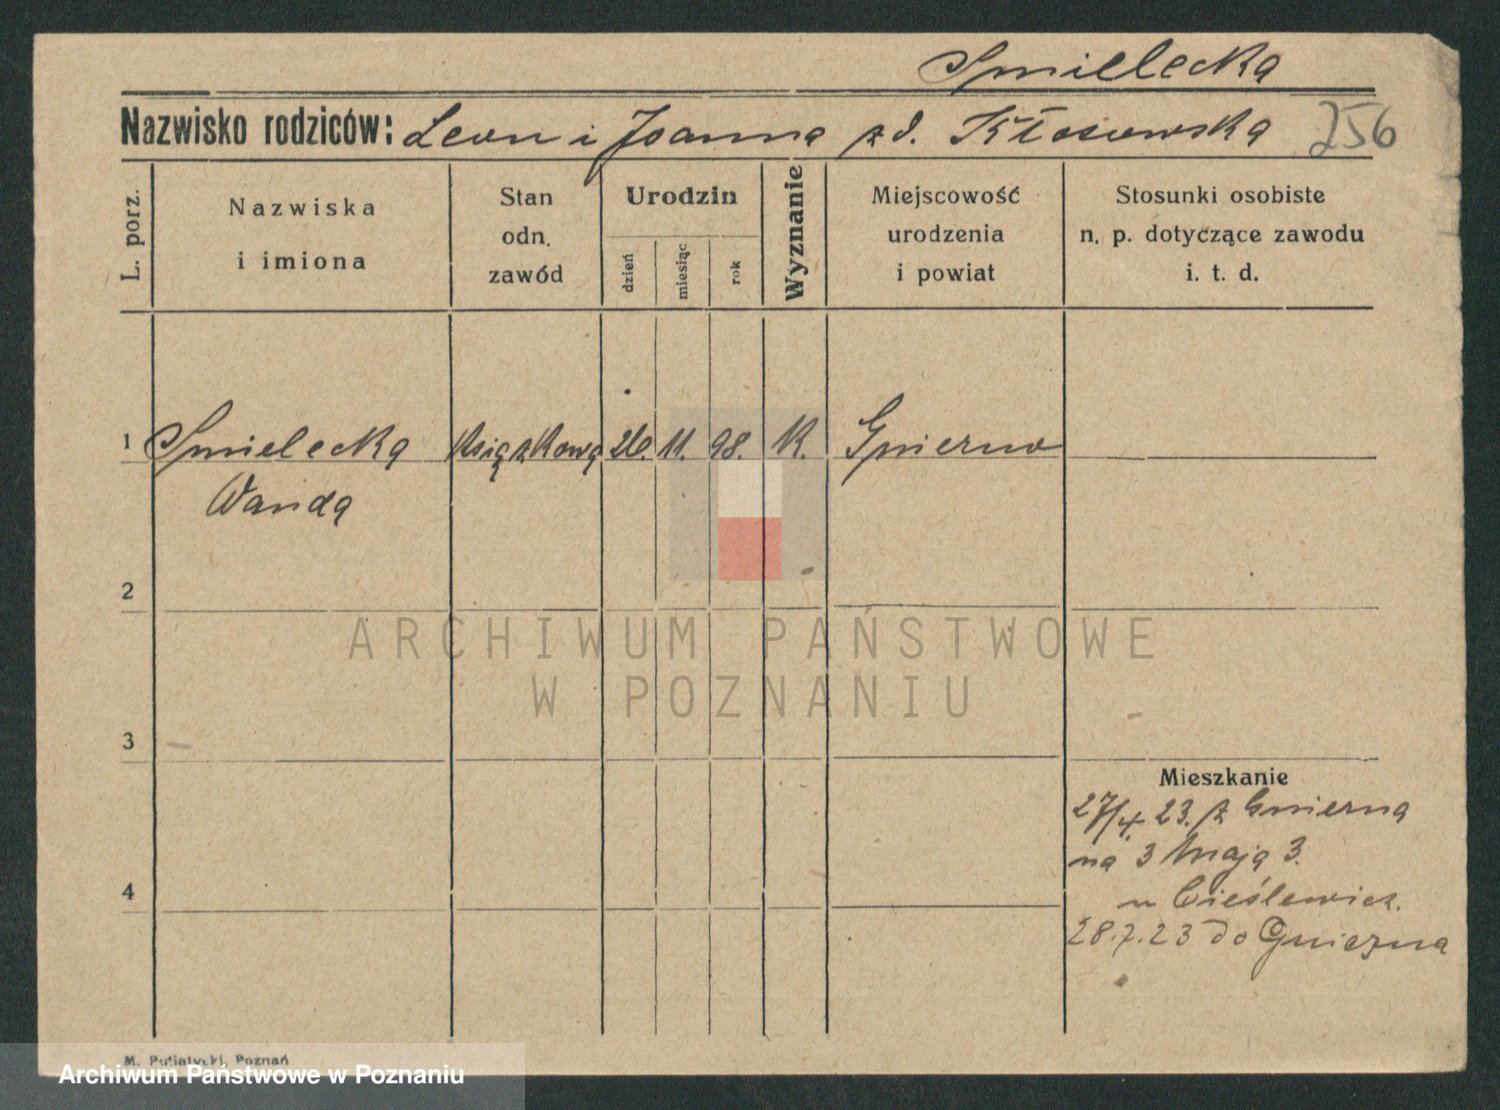 Smielecka
Nazwisko rodziców: Leon i Joanna zd. Kłosowska 256
L. porz.
Nazwiska
i imiona
Stan
odn.
zawód
Urodzin
dzień
miesiąc
rok
Wyznanie
Miejscowość
urodzenia
i powiat
Stosunki osobiste
n. p. dotyczące zawodu
i. t. d.
1 Smielecka Książkowa 26. 11. 98. K. Gniezno
Wanda
2
ARCHIWUM PAŃSTWOWE
W POZNANIU
3
Mieszkanie
27/4. 23. z Gniezna
na 3 Maja 3.
4
u Cieślewicz.
28.7.23 do Gniezna
M. Putiatycki, Poznań
Archiwum Państwowe w Poznaniu